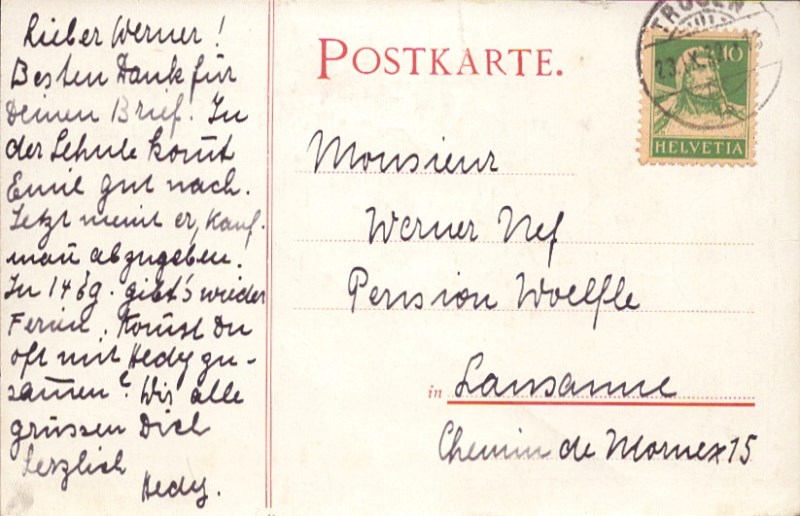 Lieber Werner!
Besten Dank für
Deinen Brief. In
der Schule kom̄t
Emil gut nach.
Jetzt meint er, Kauf-
man abzugeben.
In 14 tg. gibt's wieder
Ferien. Kom̄st Du
oft mit Hedy zu-
sam̄en? Wir alle
grüssen Dich
herzlich
Hedy.
POSTKARTE.
Monsieur
Werner Nef
Pension Woelfle
in Lausanne
Chemin de Mornex 15
TROGEN
23. IX.
10
HELVETIA